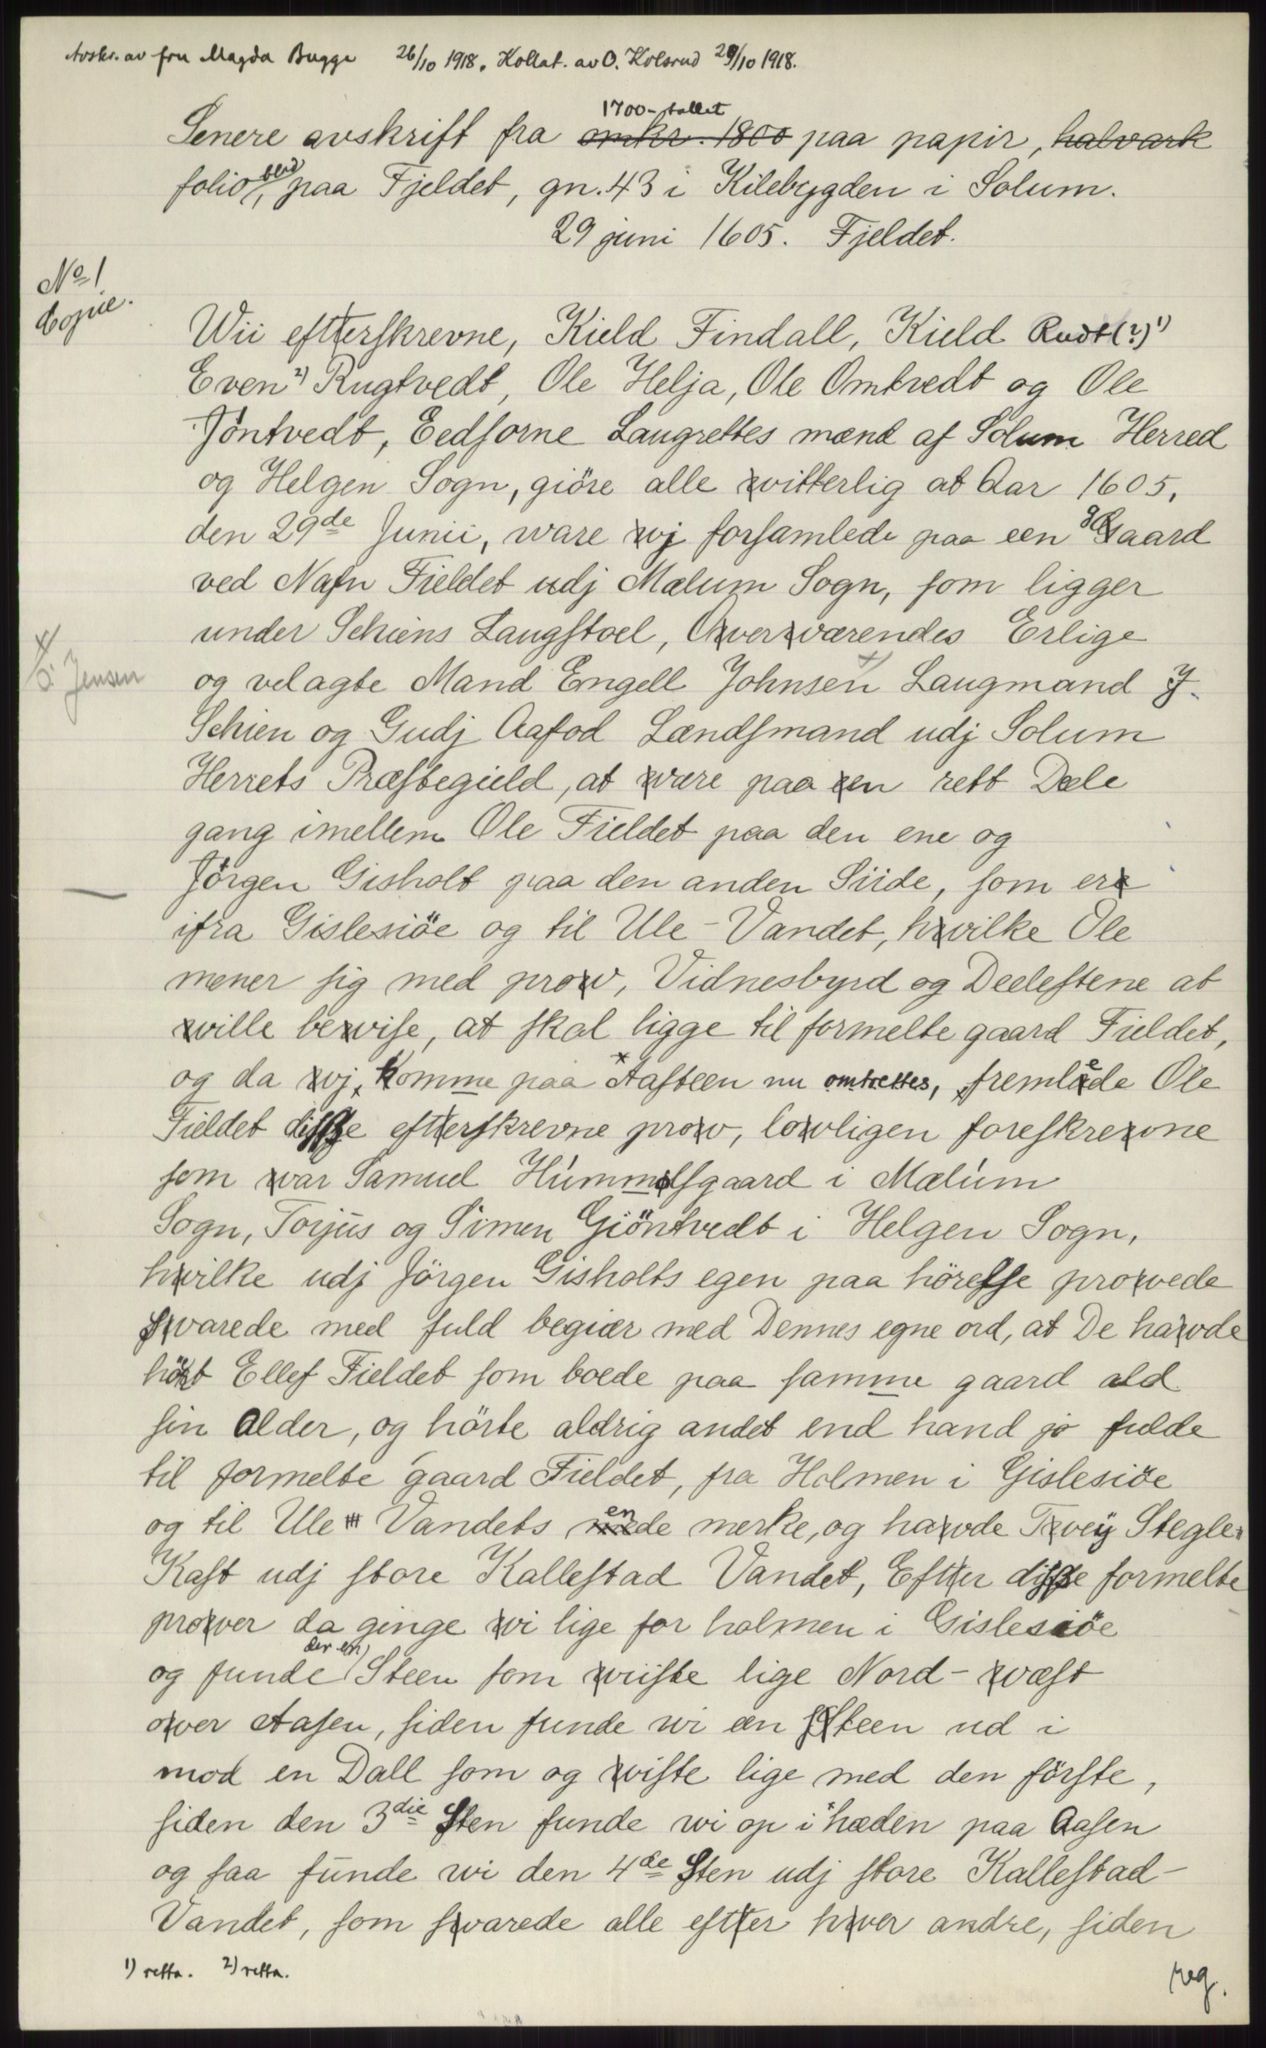 Avskr. av fru Magda Bugge 26/10 1918. Kollat. av O. Kolsrud 29/10 1918.
Senere avskrift fra omkr. 1800 1700-tallet paa papir, halvark
folioblad, paa Fjeldet, gn. 43 i Kilebygden i Solum.
29 juni 1605. Fjeldet.
No 1
Copie.
Wii efterskrevne, Kield Findall, Kield Rudt(?) 1)
Even 2) Rugtvedt, Ole Helja, Ole Omtvedt og Ole
Jöntvedt, Eedsorne Laugrettes mænd af Solum Herred
og Helgen Sogn, giöre alle vitterlig at Aar 1605,
den 29de Junii, ware vj forsamlede paa een gaard
ved Nafn Fieldet udj Mælum Sogn, som ligger
under Schiens Laugstoel, Overværendes Erlige
og velagte Mand Engell Johnsen Laugmand J
ɔ: Jensen
Schien og Gudj Aafod Lændsmand udj Solum
Herrets Præstegield, at være paa en rett Dele
gang imellem Ole Fieldet paa den ene og
Jörgen Gisholt paa den anden Siide, som er
ifra Gislesiöe og til Ule-Vandet, hvilke Ole
mener sig med prov, Vidnesbyrd og Deelestene at
ville bevise, at skal ligge til formelte gaard Fieldet,
og da vj komme paa Aasteen nu omtrettes, fremlede Ole
Fieldet disse efterskrevne prov, lovligen foreskrevne
som var Samuel Hummelsgaard i Mælum
Sogn, Torjus og Simen Giöntvedt i Helgen Sogn,
hvilke udj Jörgen Gisholts egen paa hörelse provede
svarede med fuld begiær med Dennes egne ord, at De havde
hört Ellef Fieldet som boede paa samme gaard ald
sin Alder, og hörte aldrig andet end hand jo fulde
til formelte gaard Fieldet, fra Holmen i Gislesiöe
og til Ule Vandets ende merke, og havde Tvey Stegle
Kast udj store Kallestad Vandet, Efter disse formelte
prover da ginge vi lige for holmen i Gislesiöe
og funde der en Steen som viiste lige Nord-væst
over Aasen, siden funde wi een Steen ud i
mod en Dall som og viste lige med den förste,
siden den 3die Sten funde wi op i hæden paa Aasen
og saa funde wi den 4de Sten udj store Kallestad-
Vandet, som svarede alle efter hver andre, siden
1) retta. 2) retta.